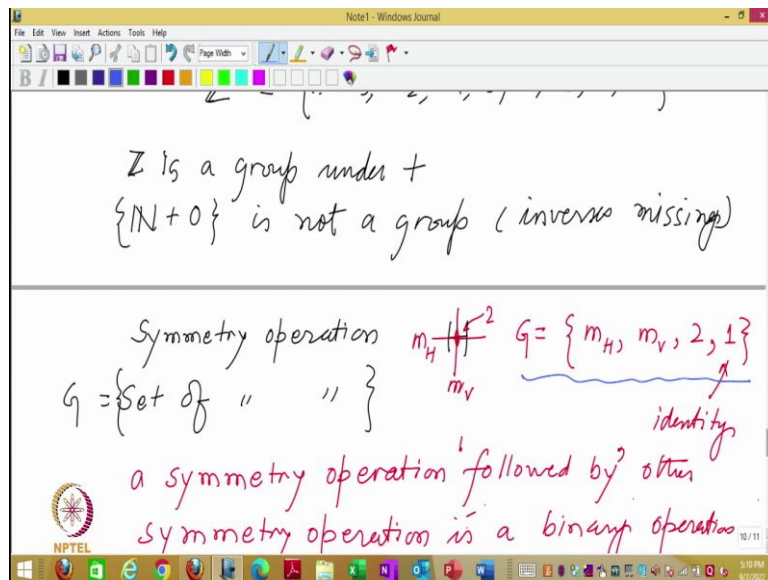 Note1 - Windows Journal
File Edit View Insert Actions Tools Help
Page Width
B I
ℤ is a group under +
{ℕ+0} is not a group (inverses missing)
Symmetry operation m_H 2 G = {m_H, m_V, 2, 1}
m_V
G = {Set of " " }
identity
a symmetry operation 'followed by' other
symmetry operation is a binary operation
10 / 11
NPTEL
5:10 PM